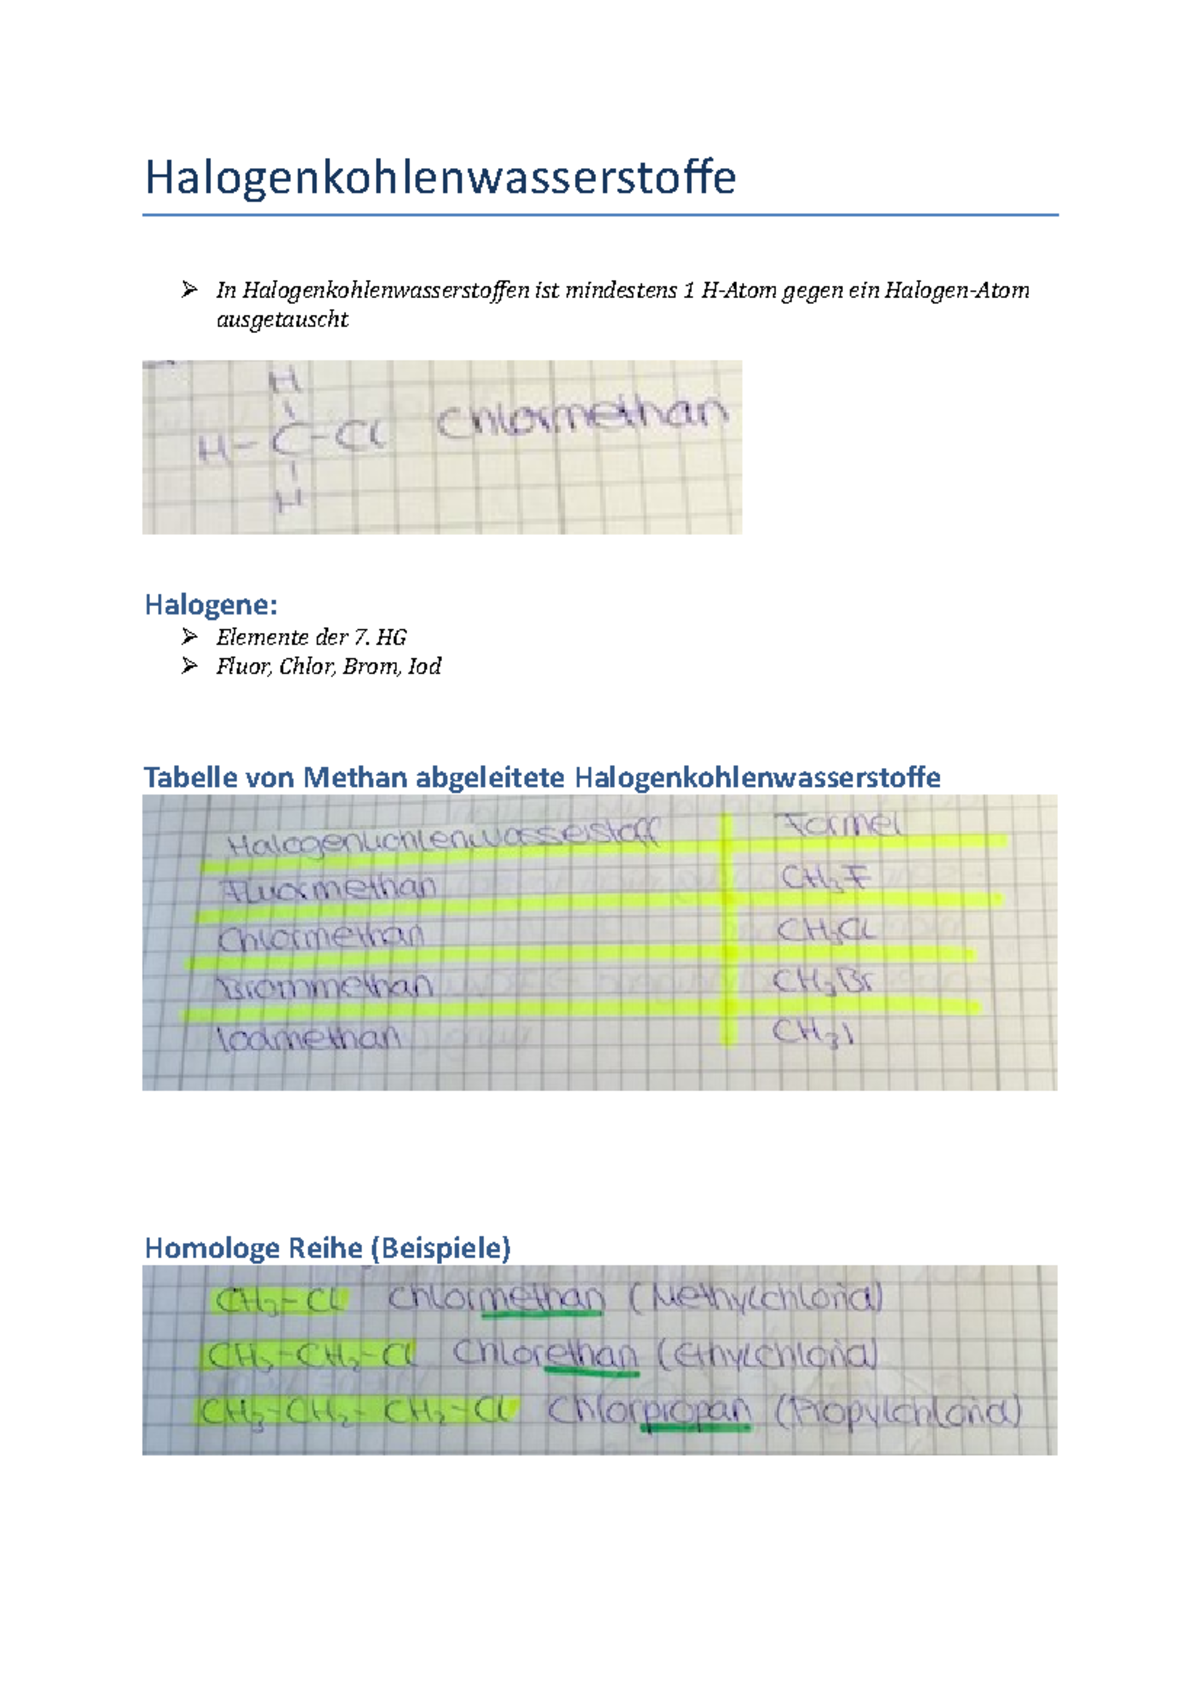 Halogenkohlenwasserstoffe
➢ In Halogenkohlenwasserstoffen ist mindestens 1 H-Atom gegen ein Halogen-Atom
ausgetauscht
H
H-C-Cl Chlormethan
H
Halogene:
➢ Elemente der 7. HG
➢ Fluor, Chlor, Brom, Iod
Tabelle von Methan abgeleitete Halogenkohlenwasserstoffe
Halogenkohlenwasserstoff Formel
Fluormethan CH₃F
Chlormethan CH₃Cl
Brommethan CH₃Br
Iodmethan CH₃I
Homologe Reihe (Beispiele)
CH₃-Cl Chlormethan (Methylchlorid)
CH₃-CH₂-Cl Chlorethan (Ethylchlorid)
CH₃-CH₂-CH₂-Cl Chlorpropan (Propylchlorid)